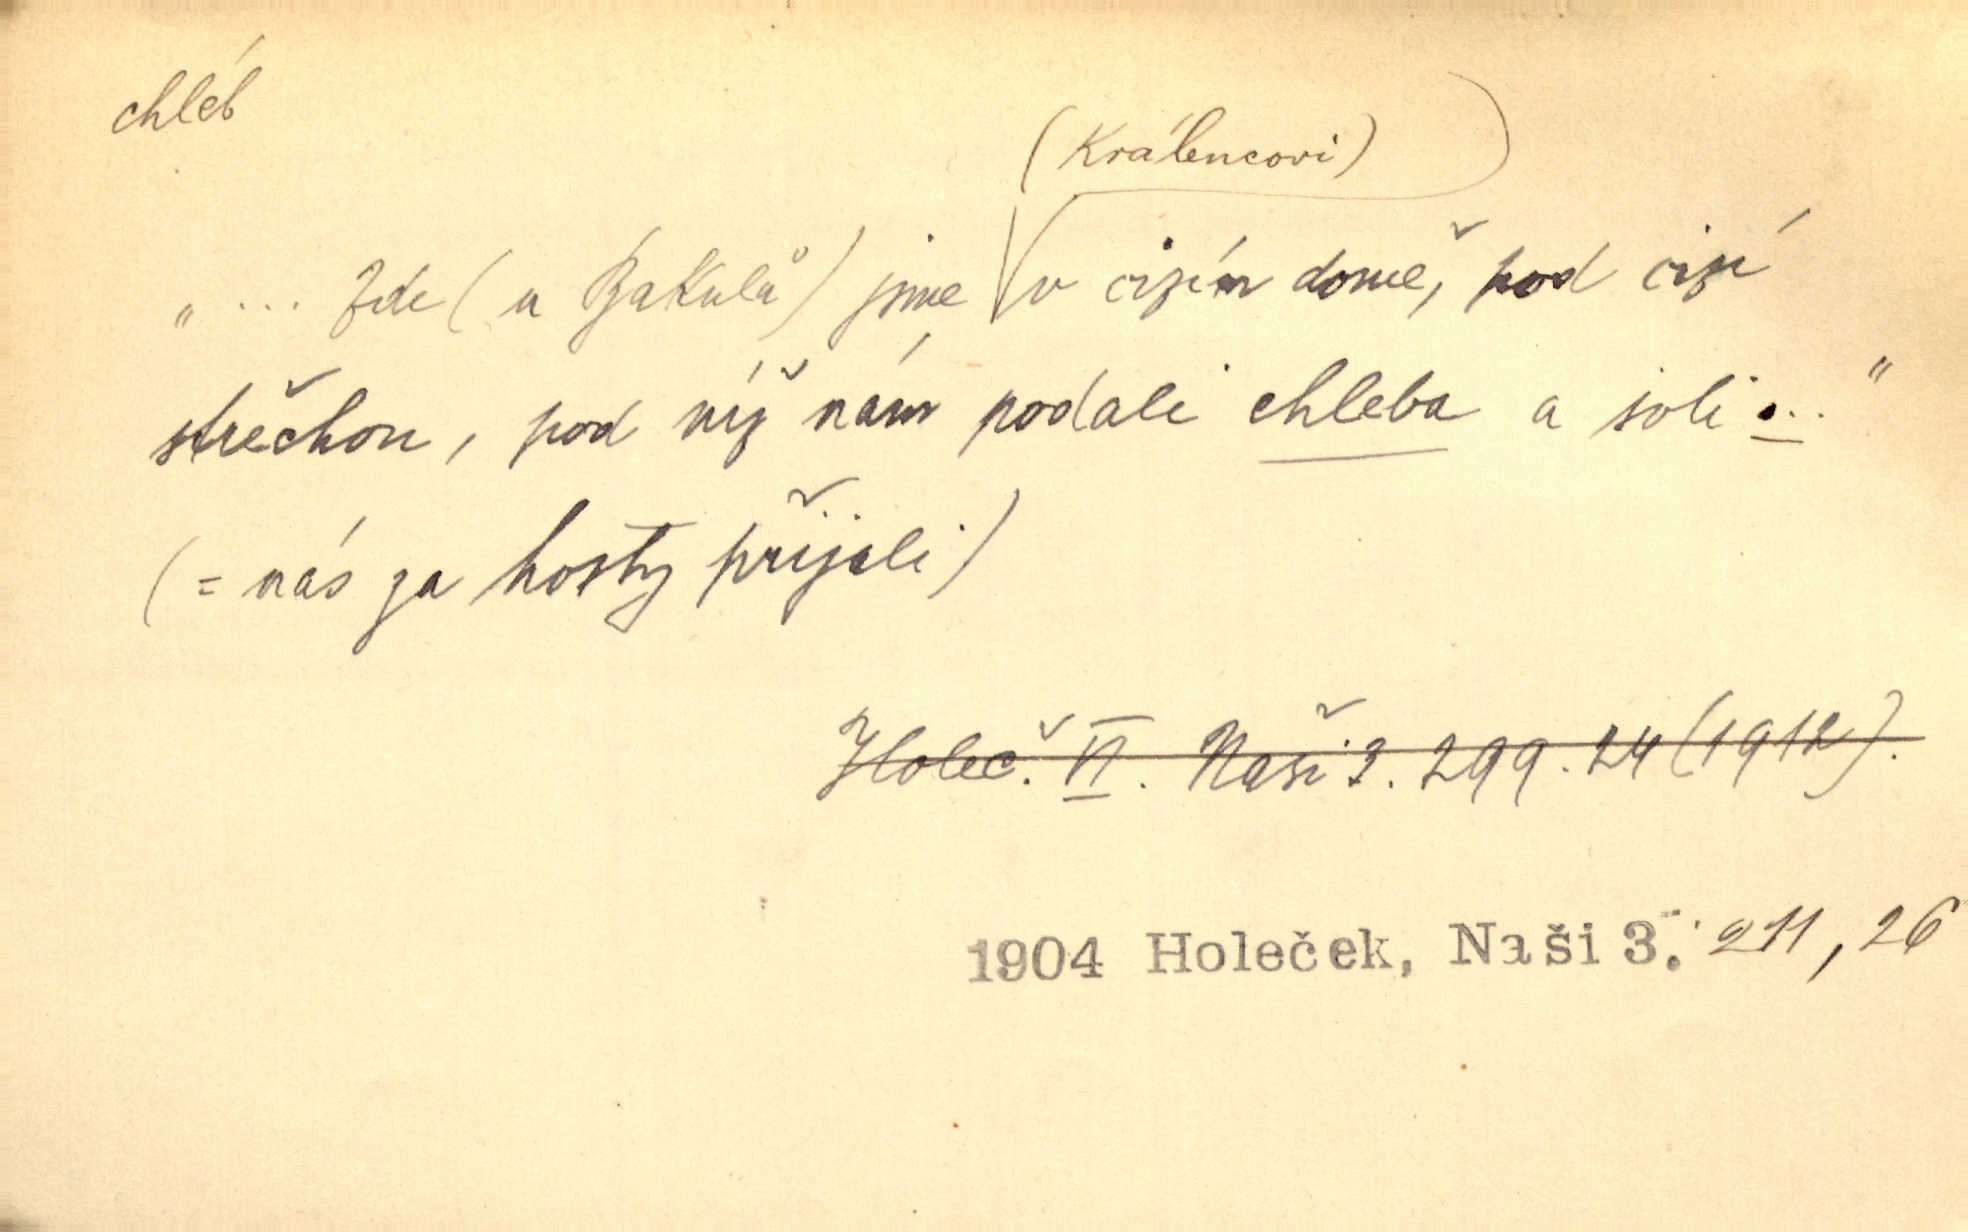 chléb
(Králencovi)
„ ... Zde (u Bakulů) jsme v cizím domě, pod cizí
střechou, pod níž nám podali chleba a soli ... "
(= nás za hosty přijali)
Holeč. VI. Naši 3. 299. 24 (1912).
1904 Holeček, Naši 3. 211, 26